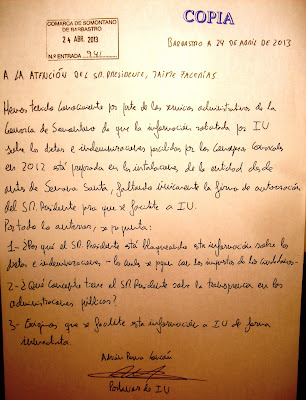 COPIA
COMARCA DE SOMONTANO
DE BARBASTRO
24 ABR. 2013
N.º ENTRADA 941
BARBASTRO A 24 DE ABRIL DE 2013
A LA ATENCIÓN DEL SR. PRESIDENTE, JAIME FACERÍAS
Hemos tenido conocimiento por parte de los servicios administrativos de la
Comarca de Somontano de que la información solicitada por IU
sobre las dietas e indemnizaciones percibidas por los Consejeros Comarcales
en 2012 está preparada en las instalaciones de la entidad desde
antes de Semana Santa, faltando únicamente la firma de autorización
del SR. Presidente para que se facilite a IU.
Por todo lo anterior, se pregunta:
1- ¿Por qué el SR. Presidente está bloqueando esta información sobre las
dietas e indemnizaciones - las cuales se pagan con los impuestos de los ciudadanos-
2- ¿Qué concepto tiene el SR. Presidente sobre la transparencia en las
administraciones públicas?
3- Exigimos que se facilite esta información a IU de forma
inmediata.
Portavoz de IU